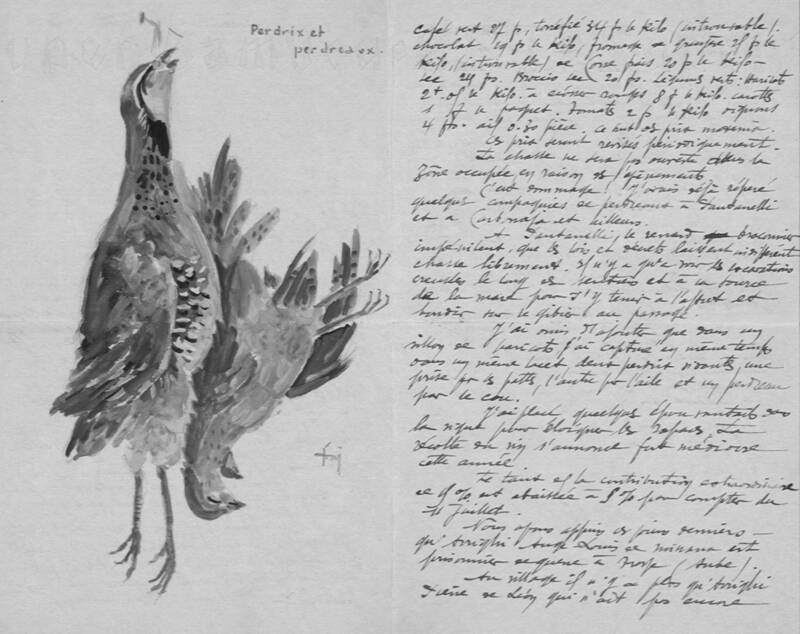 Perdrix et
perdreaux.
Café vert 27 fr, torréfié 34 fr le kilo (introuvable).
chocolat 19 fr le kilo, fromage de gruyère 25 fr le
kilo, (introuvable) de Corse frais 20 fr le kilo
sec 24 frs. Broccio sec 20 frs. Légumes verts: Haricots
le kilo. à écosser 8 f le kilo. carottes
1 f le paquet. tomate 2 f le kilo oignons
4 frs. ail 0.30 pièce. Ce sont des prix maxima.
Ces prix seront revisés périodiquement.
La chasse ne sera pas ouverte dans la
zône occupée en raison des évènements
C'est dommage! J'avais déjà repéré
quelques compagnies de perdreaux à Fantanelli
et à et ailleurs.
A Fantanelli, le renard braconnier
impénitent, que les lois et décrets laissent indifférent
chasse librement. Il n'y a qu'à voir les excavations
creusées le long des sentiers et à la source
de la mare pour s'y tenir à l'affut et
bondir sur le gibier au passage.
J'ai omis d'ajouter que dans un
sillon de haricots j'ai capturé en même temps
dans un même lacet deux perdrix vivants, une
prise par les pattes, l'autre par l'aile et un perdreau
par le cou.
J'ai placé quelques épouvantails dans
la vigne pour éloigner les rapaces. La
récolte du vin s'annonce fort médiocre
cette année.
Le taux de la contribution extraordinaire
de est abaissée à 5% pour compter du
Juillet.
Nous avons appris ces jours derniers
qu'Arrighi Ange Louis de est
prisonnier de guerre à (Aube).
Au village il n'y a plus qu'Arrighi
frère de Léon qui n'ait pas encore